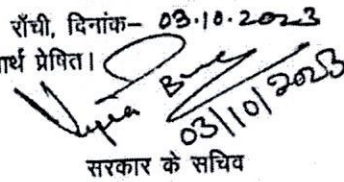 राँची, दिनांक– 03.10.2023
र्थ प्रेषित।
03/10/2023
सरकार के सचिव